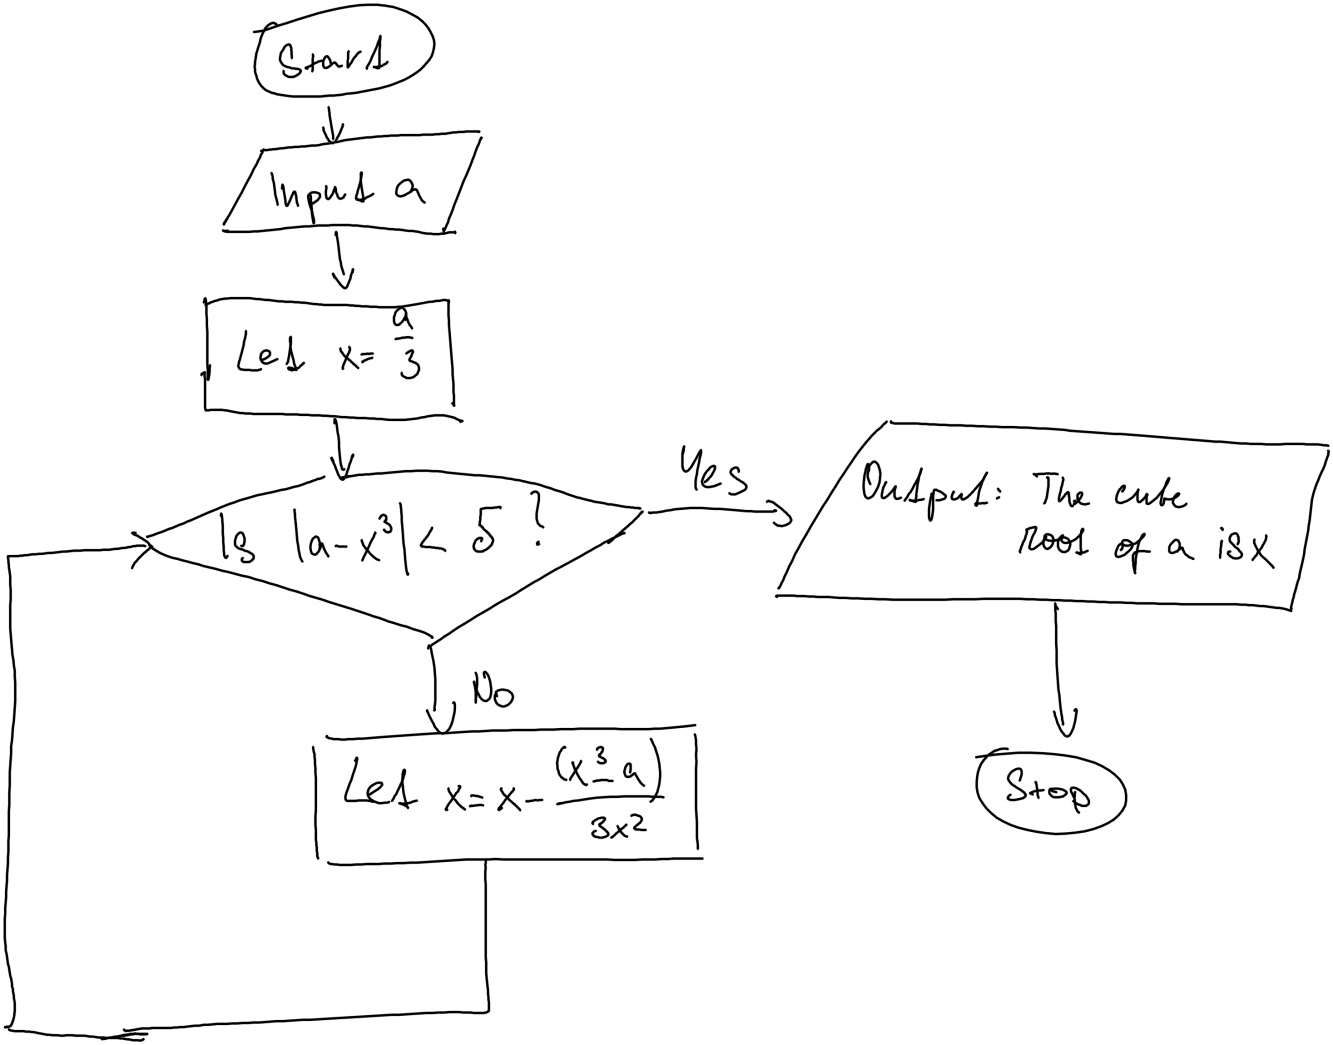 Start
Input a
Let x = a/3
Is |a - x³| < 5 ?
Yes
Output: The cube
root of a is x
No
Let x = x - (x³ - a)/3x²
Stop